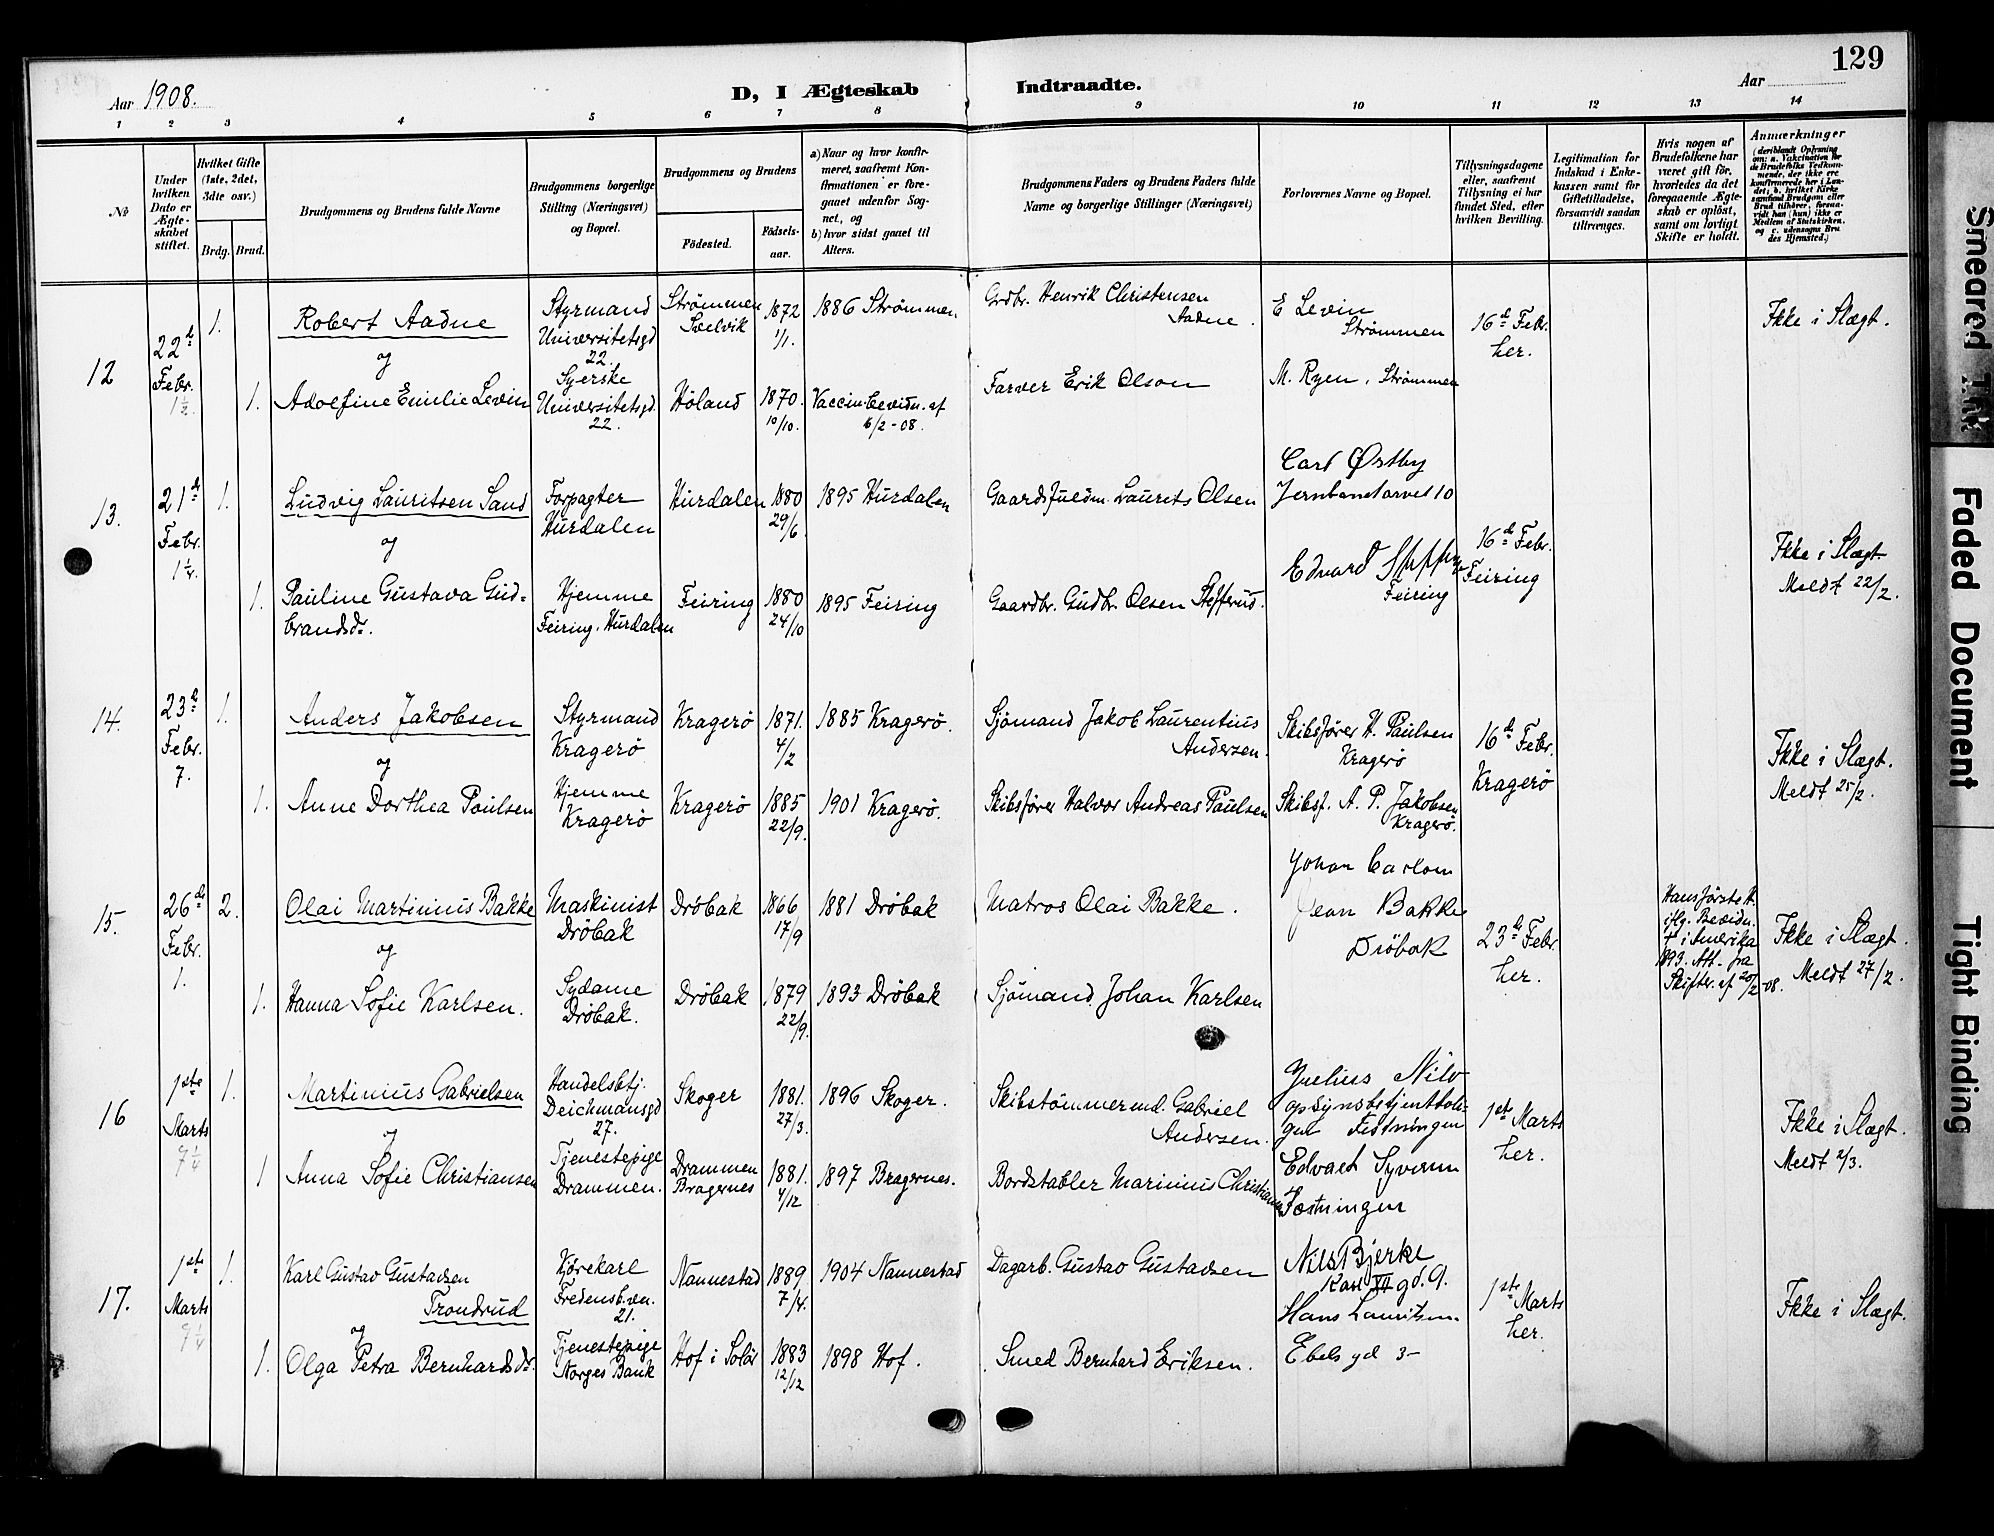 129
Aar 1908.
D, I Ægteskab Indtraadte.
Aar
1 2 3 4 5 6 7 8 9 10 11 12 13 14
№
Under hvilken Dato er Ægteskabet stiftet.
Hvilket Gifte (1ste, 2det, 3dte osv.)
Brdg. Brud.
Brudgommens og Brudens fulde Navne
Brudgommens borgerlige Stilling (Næringsvei) og Bopæl.
Brudgommens og Brudens
Födested.
Födselsaar.
a) Naar og hvor konfirmeret, saafremt Konfirmationen er foregaaet udenfor Sognet, og
b) hvor sidst gaaet til Alters.
Brudgommens Faders og Brudens Faders fulde
Navne og borgerlige Stillinger (Næringsvei)
Forlovernes Navne og Bopæl.
Tillysningsdagene eller, saafremt Tillysning ei har fundet Sted, efter hvilken Bevilling.
Legitimation for Indskud i Enkekassen samt for Giftetilladelse, forsaavidt saadan tiltrænges.
Hvis nogen af Brudefolkene har været gift för, hvorledes da det foregaaende Ægteskab er oplöst, samt om lovligt Skifte er holdt.
Anmærkninger
(deriblandt Oplysning om: a. Vakcination for de Brudefolks Vedkommende, der ikke ere konfirmerede her i Landet; b. hvilket Kirkesamfund Brudgom eller Brud tilhörer, forsaavidt han (hun) ikke er Medlem af Statskirken, og c. udensogns Brudes Hjemsted.)
12
22d Febr. 1½.
1.
Robert Aadne
og
Styrmand
Universitetsgd
22.
Strømmen
Svelvik
1872
1/1.
1886 Strømmen
Grdbr. Henrik Christensen
Aadne.
E Levin
Strømmen
16d Febr.
her.
Ikke i Slægt.
1.
Adolfine Emilie Levin
Syerske
Universitetsgd.
22.
Høland
1870.
10/10.
Vaccin. bevidn. af
6/2-08.
Farver Erik Olson
M. Ryen, Strømmen
13.
21d Febr. 1¼.
1.
Ludvig Lauritsen Sand
og
Forpagter
Hurdalen
Hurdalen
1880
29/6
1895 Hurdalen
Gaardsfuldm. Laurits Olsen
Carl Østby
Jernbanetorvet 10
16d Febr.
Feiring
Ikke i Slægt.
Meldt 22/2.
1.
Pauline Gustava Gud=
brandsdr.
Hjemme
Feiring, Hurdalen
Feiring
1880
24/10
1895 Feiring
Gaardbr. Gudbr. Olsen Stefferud.
Edvard
Feiring
14.
23d Febr. 7.
1.
Anders Jakobsen
og
Styrmand
Kragerø
Kragerø
1871.
4/2
1885 Kragerø.
Sjömand Jakob Laurentius
Andersen.
Skibsfører H. Paulsen
Kragerø
16d Febr.
Kragerø
Ikke i Slægt.
Meldt 25/2.
1.
Anne Dorthea Paulsen
Hjemme
Kragerø
Kragerø
1885
22/9.
1901 Kragerø.
Skibsfører Halvor Andreas Paulsen
Skibsf. A. P. Jakobsen
Kragerø.
15.
26de Febr. 1.
2.
Olai Martinius Bakke
og
Maskinist
Drøbak
Drøbak
1866
17/9
1881 Drøbak
Matros Olai Bakke.
Johan Carlson
Jean Bakke
Drøbak
23d Febr.
her.
Hans første H.
iflg. Bevidn.
† i Amerika
1893. Att. fra
Skifter. af 20/2-08.
Ikke i Slægt.
Meldt 27/2.
1.
Hanna Sofie Karlsen.
Sydame
Drøbak.
Drøbak
1879
22/9.
1893 Drøbak
Sjömand Johan Karlsen
16
1ste Marts 9¼
1.
Martinius Gabrielsen
og
Handelsbtj.
Deichmansgd
27.
Skoger
1881.
27/3.
1896 Skoger.
Skibstömmermd. Gabriel
Andersen.
1ste Marts
her.
Ikke i Slægt.
Meldt 2/3.
1
Anna Sofie Christiansen
Tjenestepige
Drammen.
Drammen
Bragernes
1881.
4/12
1897 Bragernes.
Bordstabler Marinius Christiansen
Fæstningen
17.
1ste Marts 9¼
1.
Karl Gustav Gustavsen
Trondrud
og
Kjørekarl
Fredensb.vn.
21.
Nannestad
1889
7/4.
1904 Nannestad
Dagarb. Gustav Gustavsen
Nils Bjerke
Karl XII gd. 9.
1ste Marts
her.
Ikke i Slægt.
1.
Olga Petra Bernhardsdr.
Tjenestepige
Norges Bank
Hof i Solør
1883
12/12
1898 Hof.
Smed Bernhard Eriksen.
Hans Lauritsen
Ebels gd 3-
Smeared Ink
Faded Document
Tight Binding